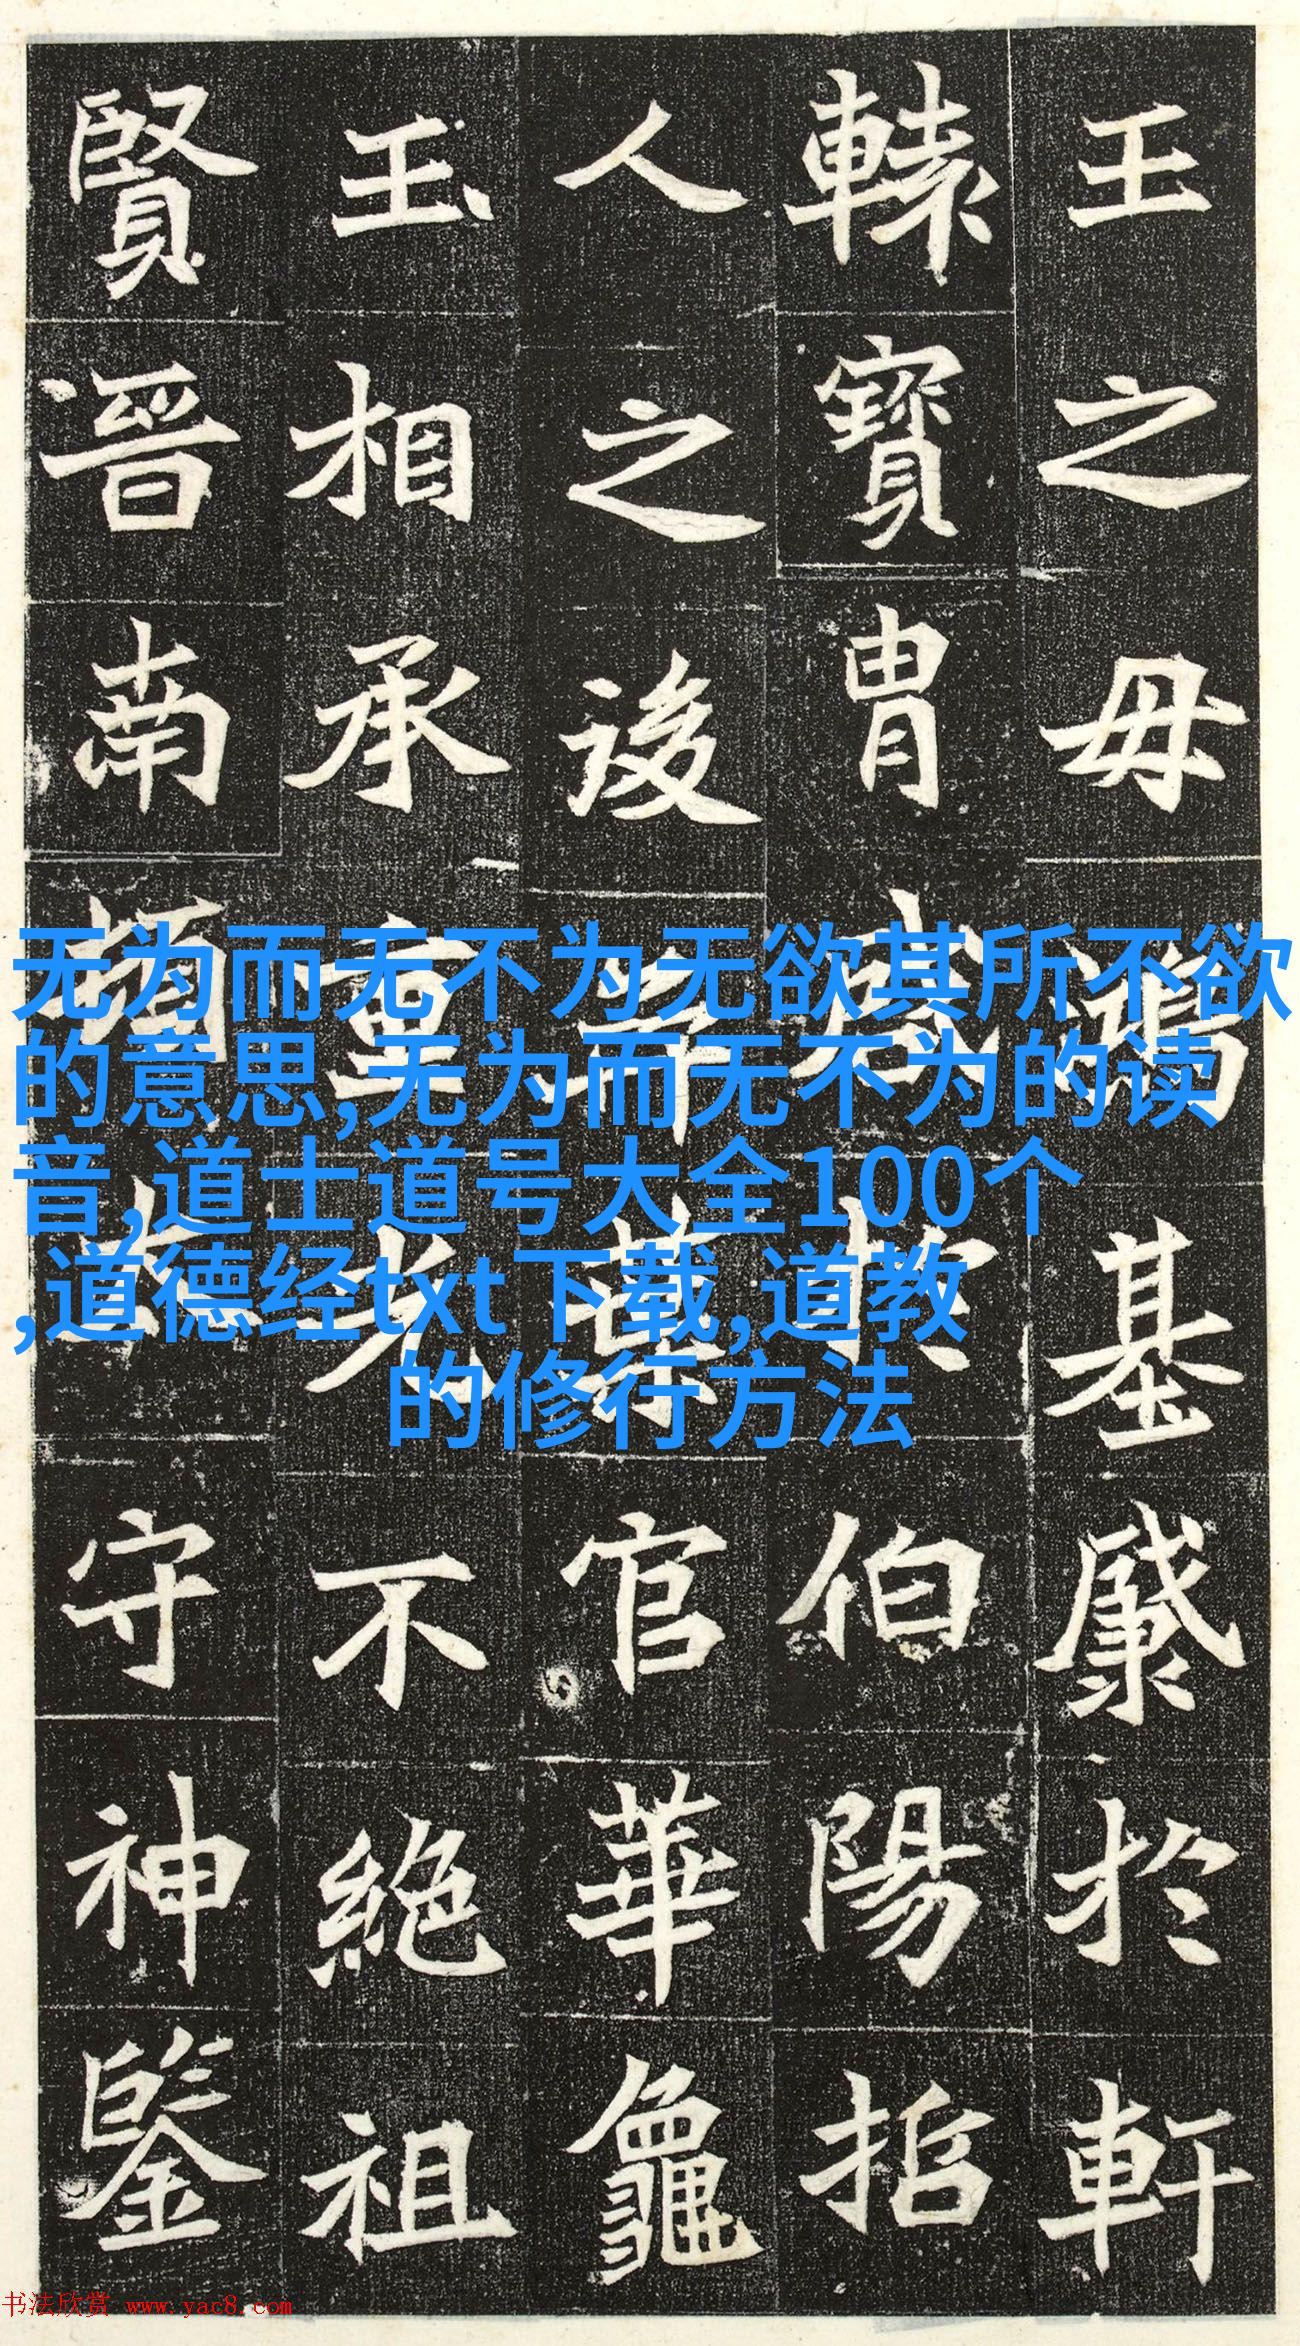 王之毋鴻基於軒
轅寶胄盛於伯陽
人之後葉官華龜
玉相承重光不絕祖
賢晉南頓太守神鑒
无为而无不为无欲其所不欲
的意思,无为而无不为的读
音,道士道号大全100个
,道德经txt下载,道教
的修行方法
书法欣赏 www.yac8.com